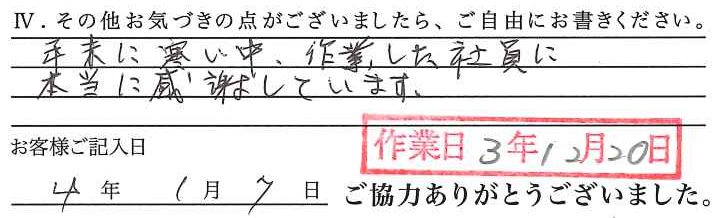 Ⅳ．その他お気づきの点がございましたら、ご自由にお書きください。
年末に寒い中、作業した社員に
本当に感謝しています。
お客様ご記入日
作業日 3年12月20日
4年 1月 7日 ご協力ありがとうございました。